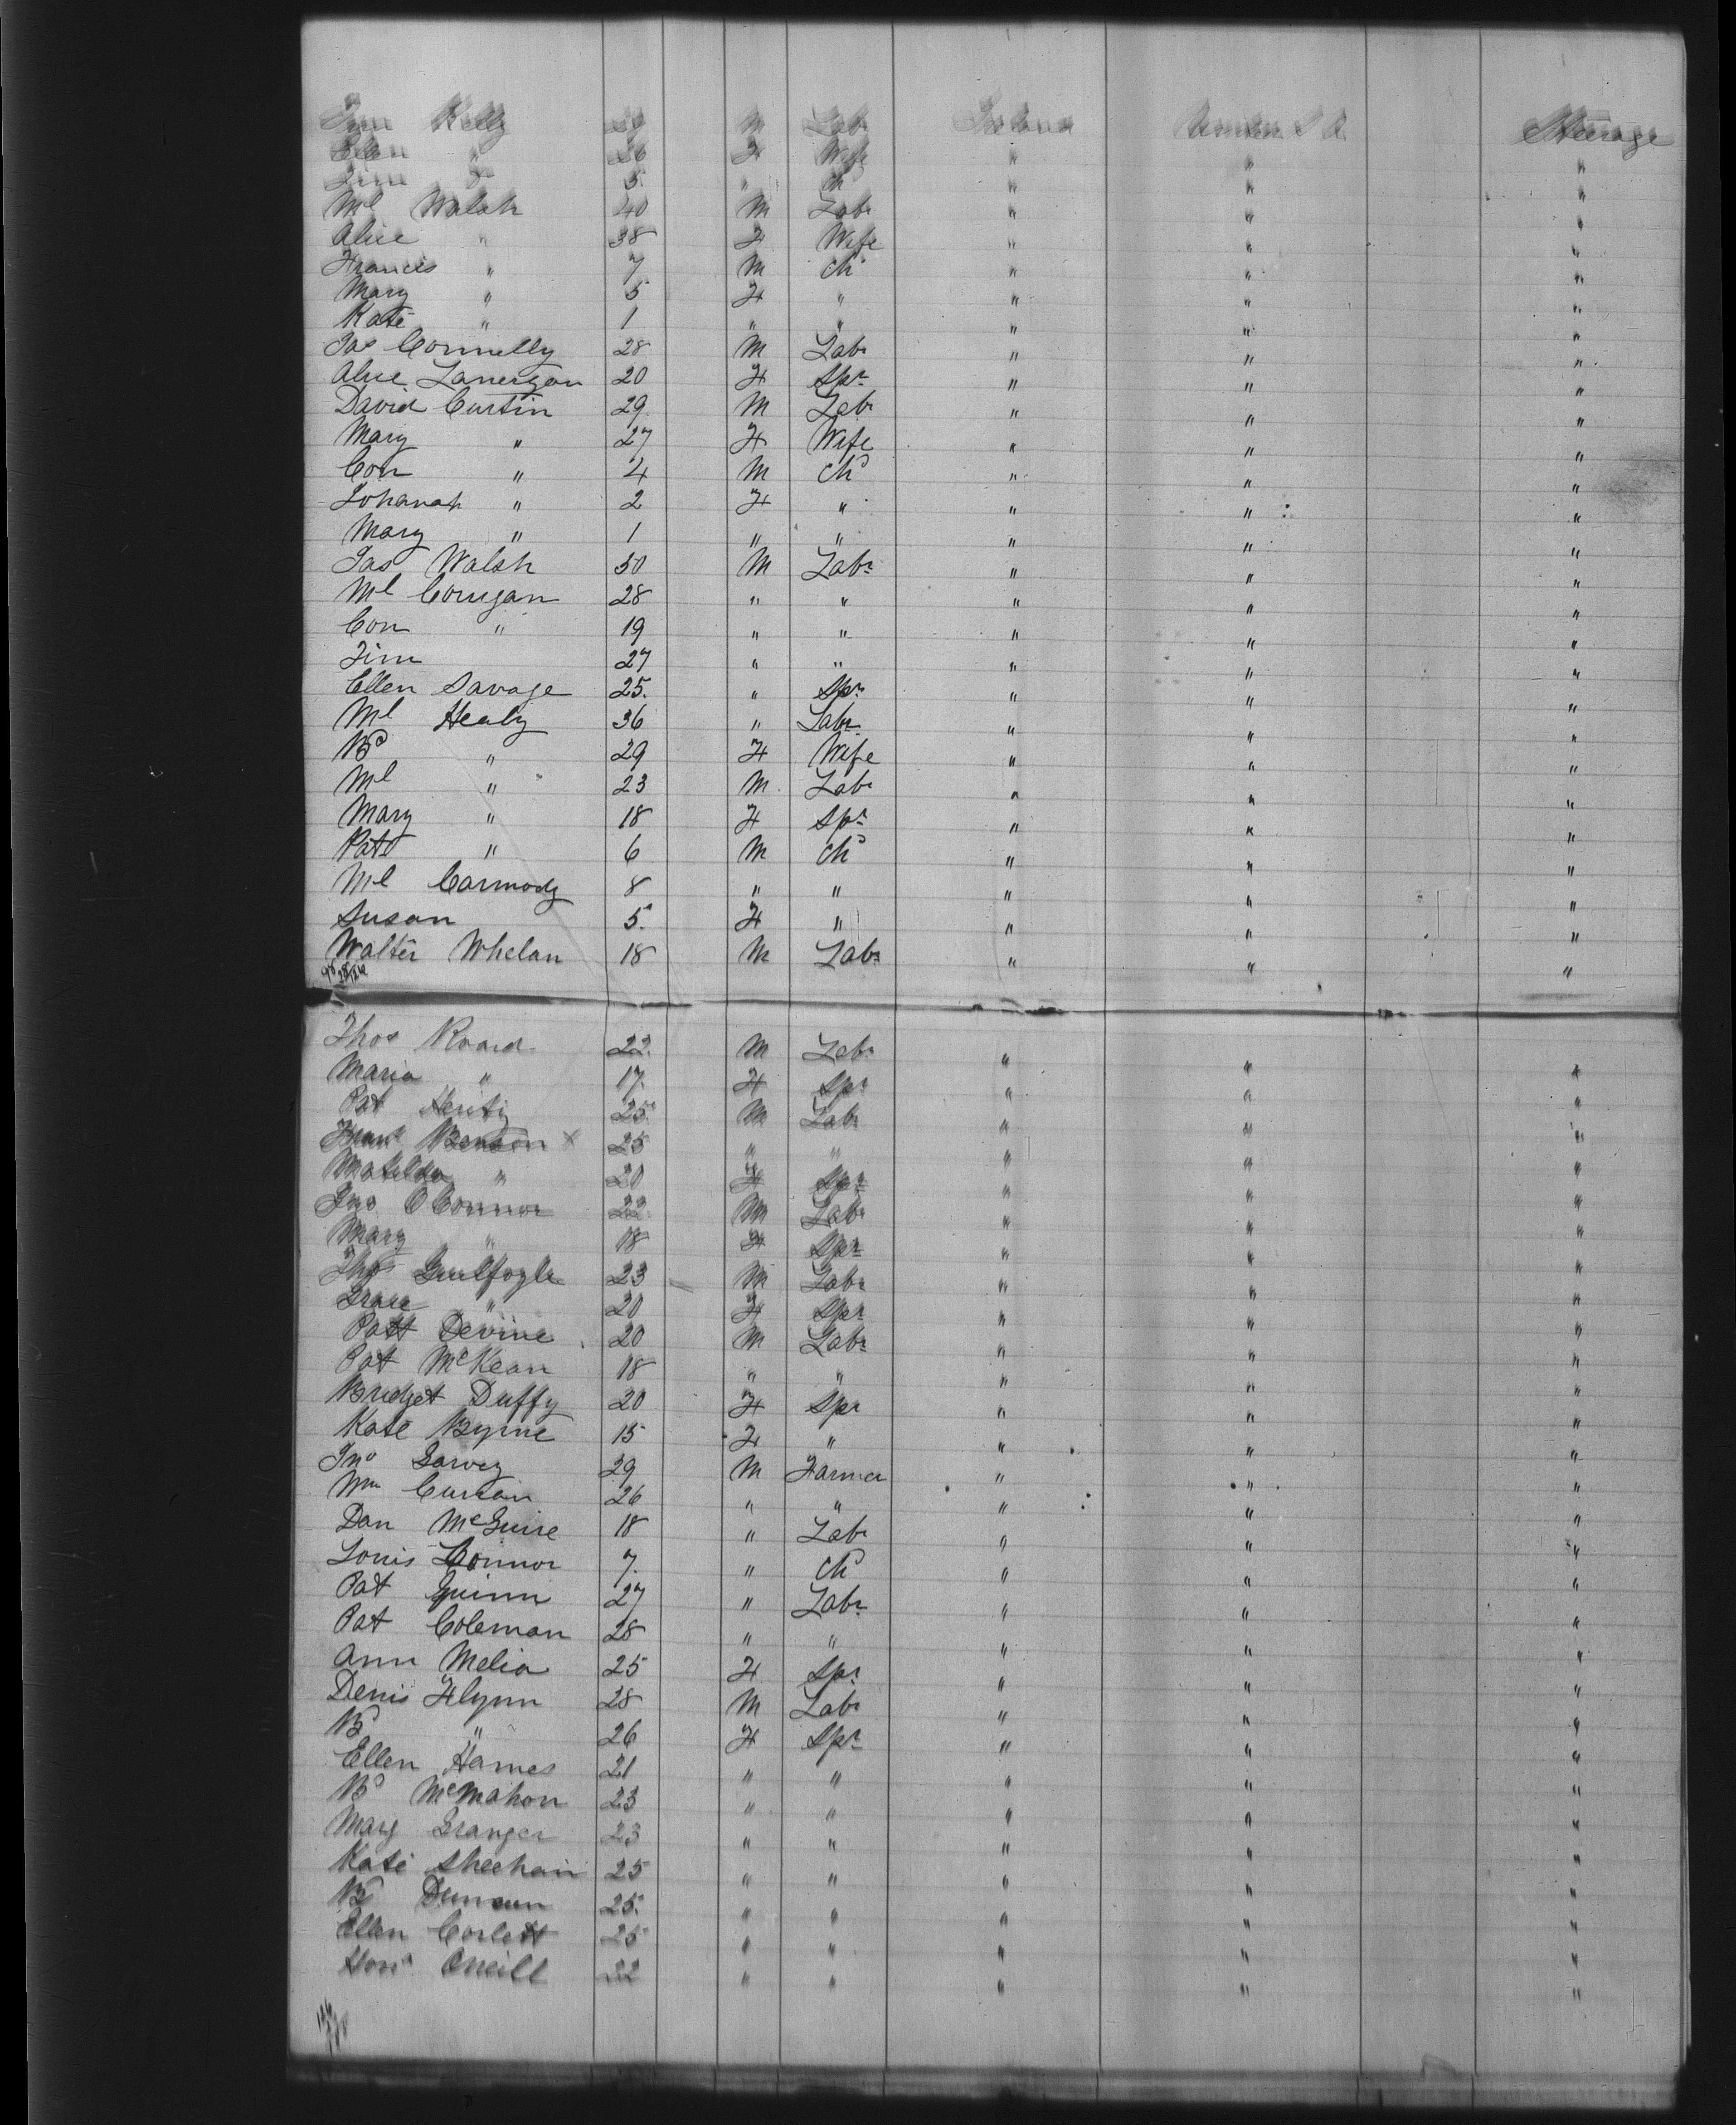 Kelly M Lab Ireland United S A Steerage
Ellen " 26 F Wife " " "
5 " Chd " " "
Ml Walsh 40 M Labr " " "
Alice " 38 F Wife " " "
Francis " 7 M Chd " " "
Mary " 5 F " " " "
Kate " 1 " " " " "
Jas Connelly 28 M Labr " " "
Alice Lanergan 20 F Spr " " "
David Curtin 29 M Labr " " "
Mary " 27 F Wife " " "
Con " 4 M Chd " " "
Johanah " 2 F " " " "
Mary " 1 " " " " "
Jas Walsh 50 M Labr " " "
Ml Corrigan 28 " " " " "
Con " 19 " " " " "
Tim 27 " " " " "
Ellen Savage 25 " Spr " " "
Ml Healy 36 " Labr " " "
Bd " 29 F Wife " " "
Ml " 23 M Labr " " "
Mary " 18 F Spr " " "
Patk " 6 M Chd " " "
Ml Carmody 8 " " " " "
Susan 5 F " " " "
Walter Whelan 18 M Labr " " "
Thos Roard 22 M Labr " " "
Maria " 17 F Spr " " "
Pat 25 M Labr " " "
Frank Benson x 25 " " " " "
Matilda " 20 F Spr " " "
Jno OConnor 22 M Labr " " "
Mary " 18 F Spr " " "
Thos Guilfoyle 23 M Labr " " "
Grace " 20 F Spr " " "
Patt Devine 20 M Labr " " "
Pat McKean 18 " " " " "
Bridget Duffy 20 F Spr " " "
Kate Byrne 15 F " " " "
Jno Garvey 29 M Farmer " " "
Wm Curran 26 " " " " "
Dan McGuire 18 " Labr " " "
Louis Connor 7 " Chd " " "
Pat Quinn 27 " Labr " " "
Pat Coleman 28 " " " " "
Ann Melia 25 F Spr " " "
Denis Flynn 28 M Labr " " "
Bd " 26 F Spr " " "
Ellen Hames 21 " " " " "
Bd McMahon 23 " " " " "
Mary Granger 23 " " " " "
Kate Sheehan 25 " " " " "
Bd Duncan 25 " " " " "
Ellen Corlett 25 " " " " "
Hona ONeill 22 " " " " "